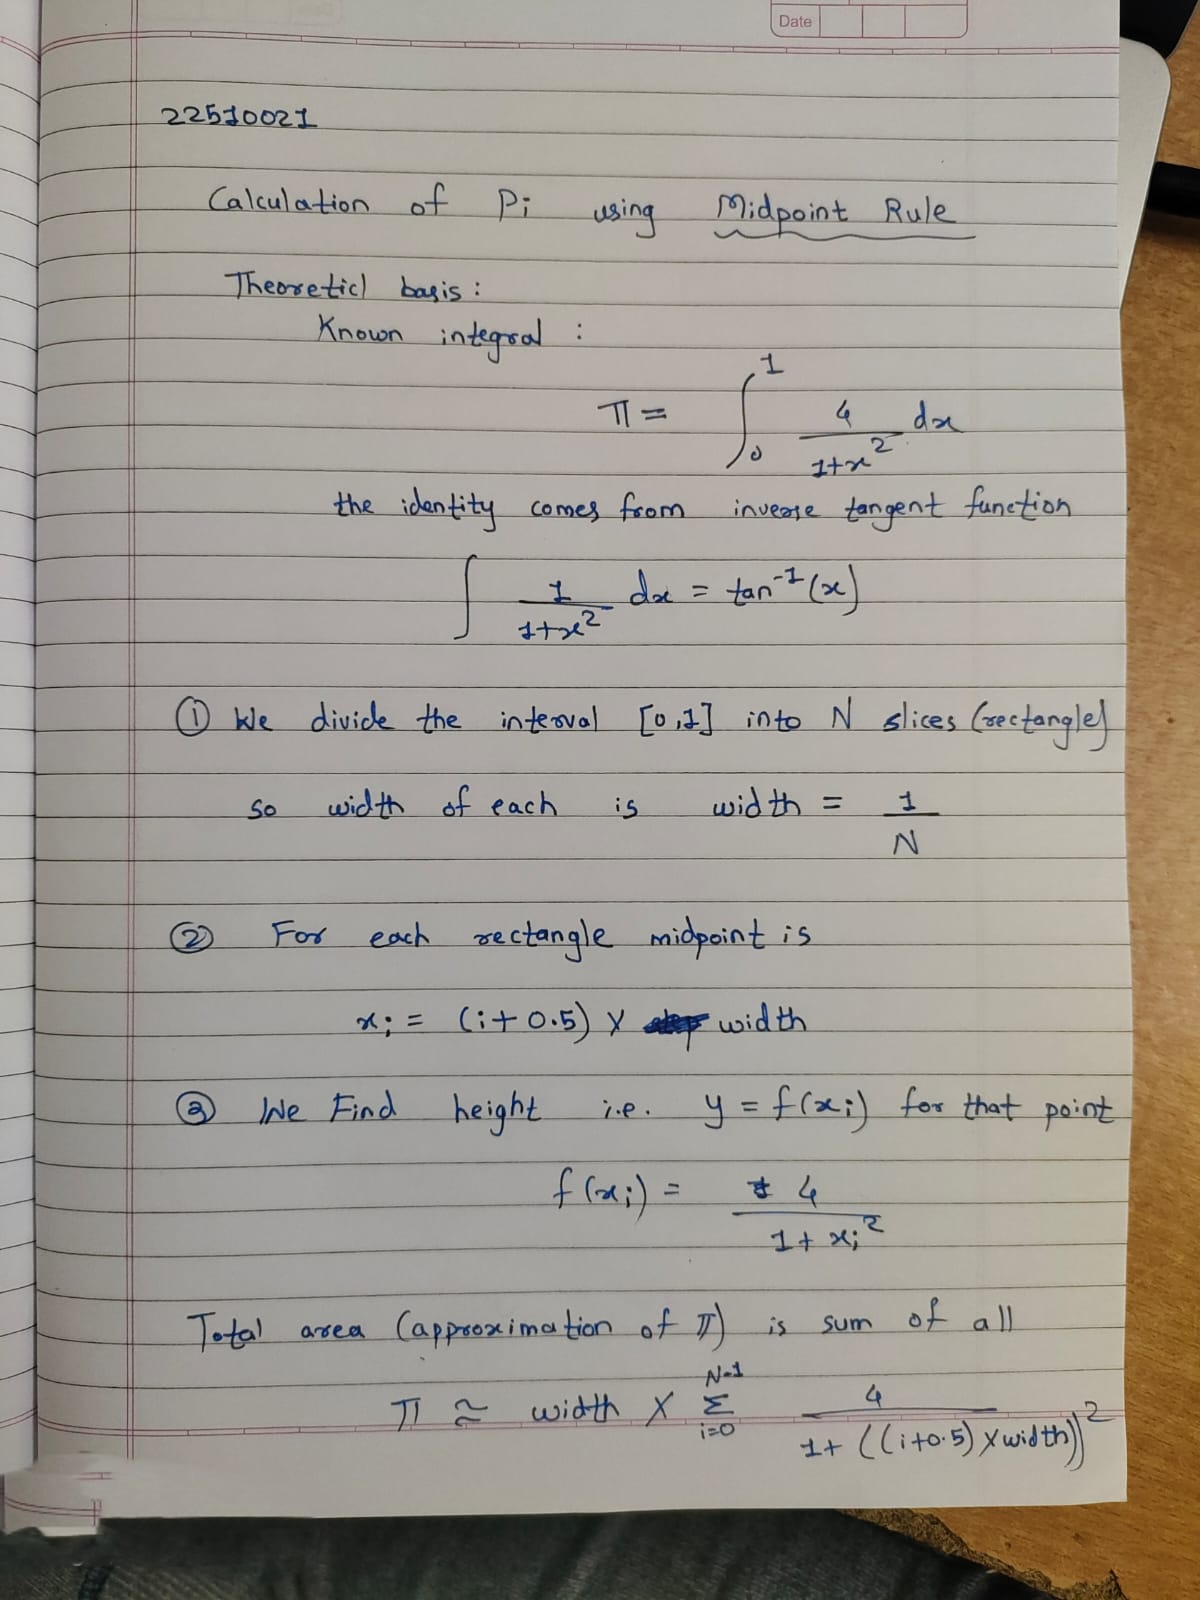 Date
22510021
Calculation of Pi using Midpoint Rule
Theoreticl basis:
Known integral :
π = ∫₀¹ 4/(1+x²) dx
the identity comes from inverse tangent function
∫ 1/(1+x²) dx = tan⁻¹(x)
① We divide the interval [0,1] into N slices (rectangle)
so width of each is width = 1/N
② For each rectangle midpoint is
xᵢ = (i+0.5) × width
③ We Find height i.e. y = f(xᵢ) for that point
f(xᵢ) = 4/(1+xᵢ²)
Total area (approximation of π) is sum of all
π ≈ width × Σ_{i=0}^{N-1} 4/(1+((i+0.5)×width))²